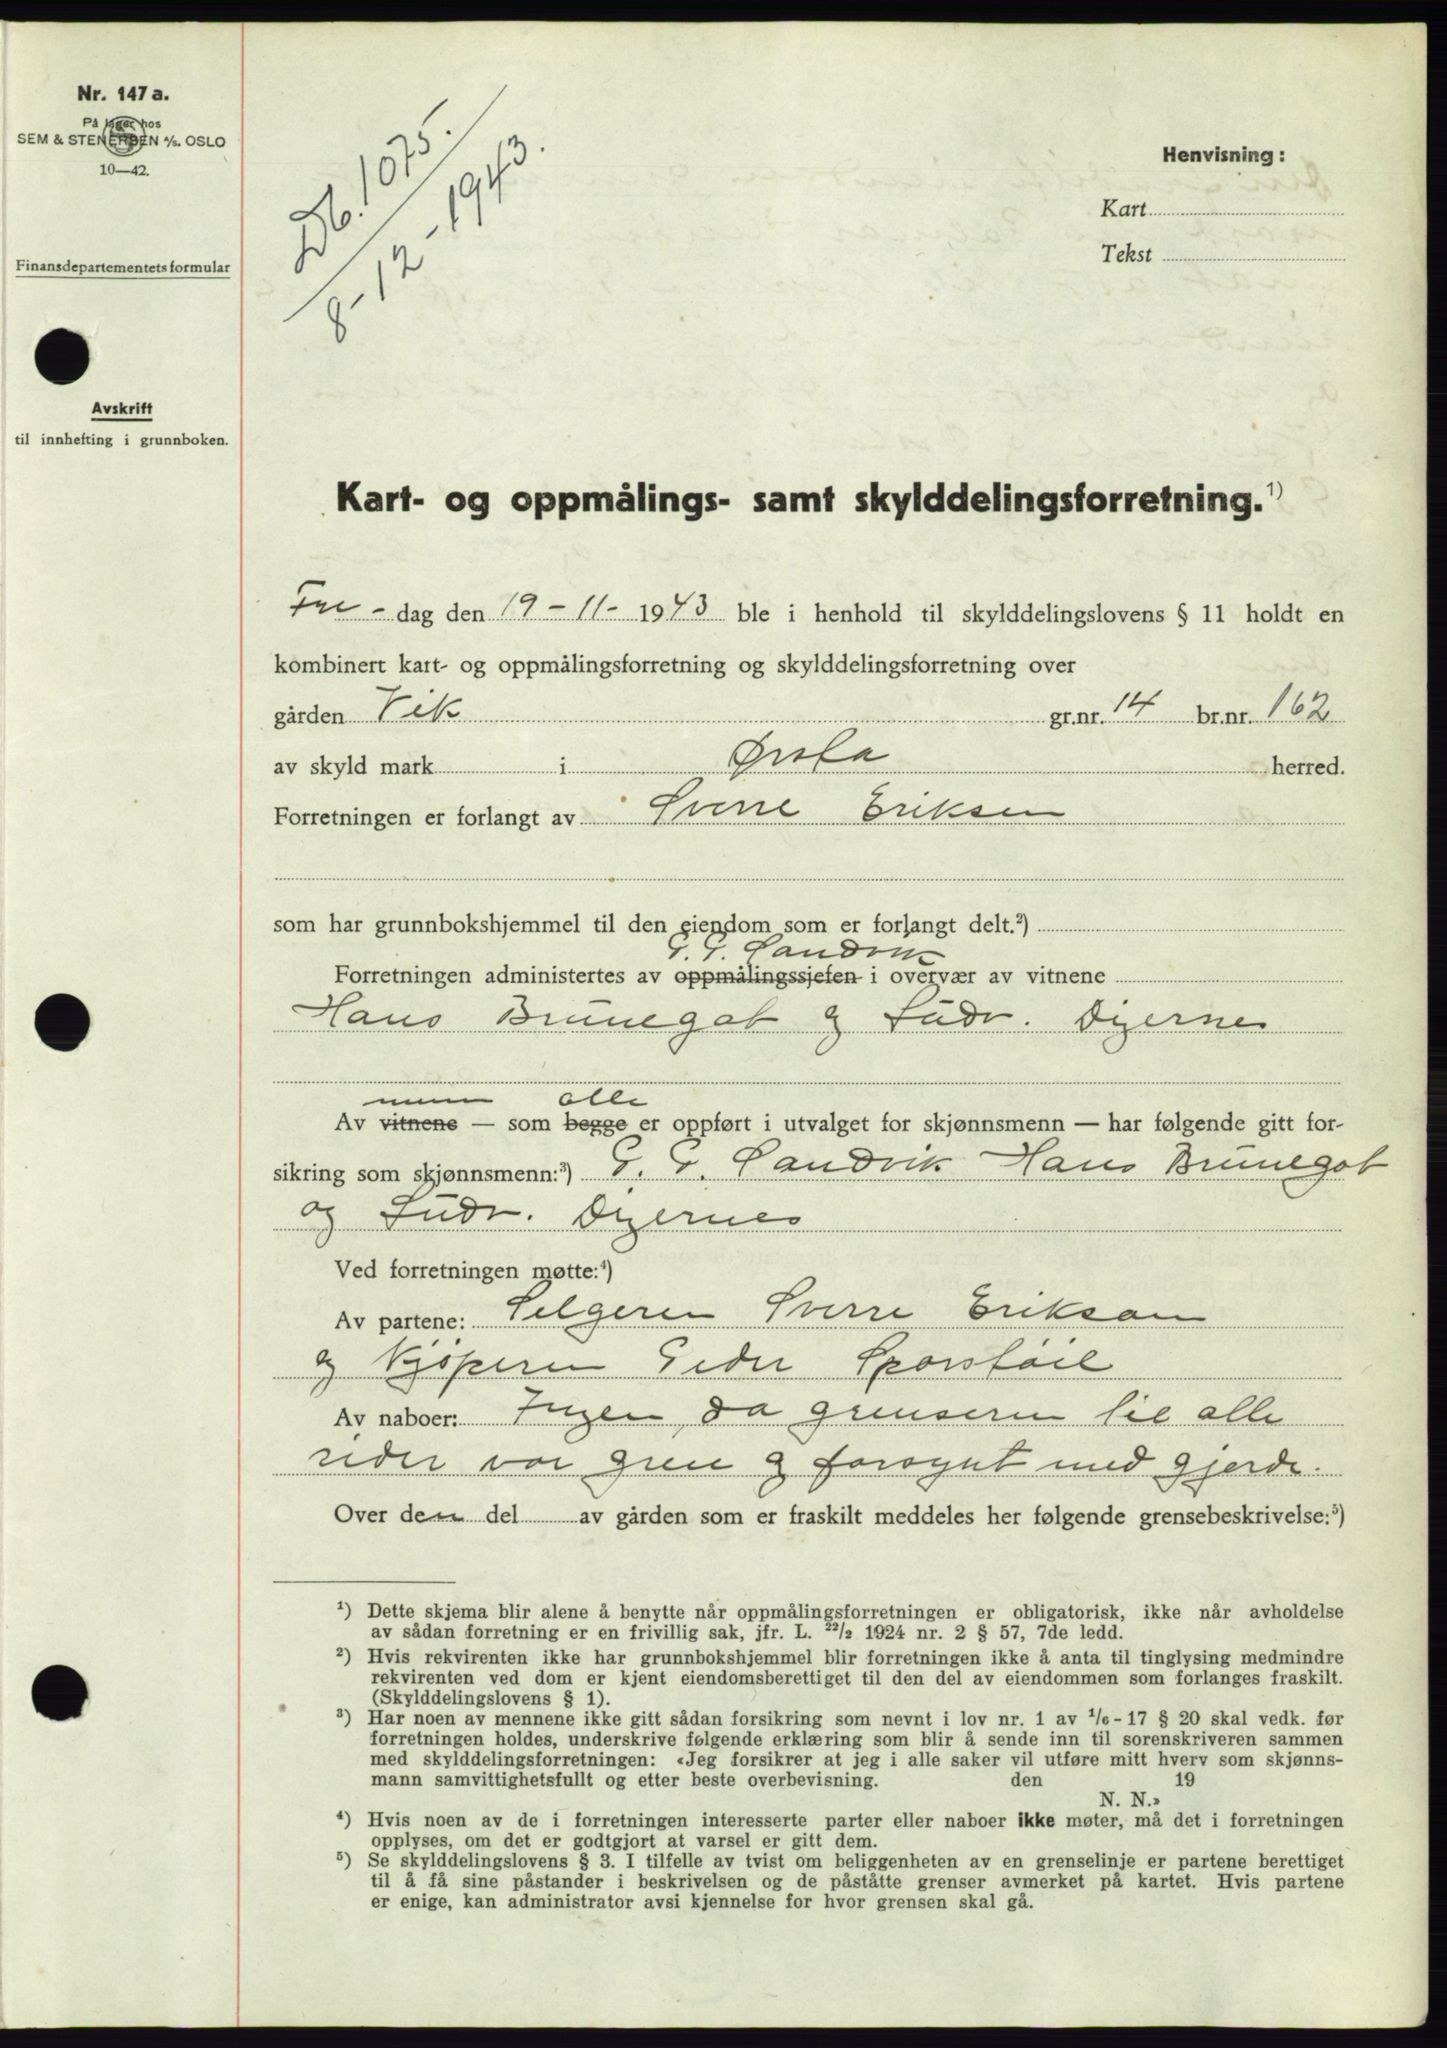 Nr. 147 a.
På lager hos
SEM & STENERSEN A/S. OSLO
10—42.
Finansdepartementets formular
Avskrift
til innhefting i grunnboken.
Db. 1075.
8-12-1943.
Henvisning:
Kart
Tekst
Kart- og oppmålings- samt skylddelingsforretning.¹)
Fre - dag den 19-11- 1943 ble i henhold til skylddelingslovens § 11 holdt en
kombinert kart- og oppmålingsforretning og skylddelingsforretning over
gården Vik gr.nr. 14 br.nr. 162
av skyld mark i Ørsta herred.
Forretningen er forlangt av Sverre Eriksen
som har grunnbokshjemmel til den eiendom som er forlangt delt.²)
G. G. Sandvik
Forretningen administertes av oppmålingssjefen i overvær av vitnene
Hans Brunegot og Gudr.
menn alle
Av vitnene — som begge er oppført i utvalget for skjønnsmenn — har følgende gitt for-
sikring som skjønnsmenn:³) G. G. Sandvik Hans Brunegot
og Gudr.
Ved forretningen møtte:⁴)
Av partene: Selgeren Sverre Eriksen
og kjøperen Peder Sporstøil
Av naboer: Ingen, da grensene til alle
sider var grei og forsynt med gjerde.
Over den del av gården som er fraskilt meddeles her følgende grensebeskrivelse:⁵)
¹) Dette skjema blir alene å benytte når oppmålingsforretningen er obligatorisk, ikke når avholdelse
av sådan forretning er en frivillig sak, jfr. L. 22/2 1924 nr. 2 § 57, 7de ledd.
²) Hvis rekvirenten ikke har grunnbokshjemmel blir forretningen ikke å anta til tinglysing medmindre
rekvirenten ved dom er kjent eiendomsberettiget til den del av eiendommen som forlanges fraskilt.
(Skylddelingslovens § 1).
³) Har noen av mennene ikke gitt sådan forsikring som nevnt i lov nr. 1 av 1/6-17 § 20 skal vedk. før
forretningen holdes, underskrive følgende erklæring som blir å sende inn til sorenskriveren sammen
med skylddelingsforretningen: «Jeg forsikrer at jeg i alle saker vil utføre mitt hverv som skjønns-
mann samvittighetsfullt og etter beste overbevisning. den 19
N. N.»
⁴) Hvis noen av de i forretningen interesserte parter eller naboer ikke møter, må det i forretningen
opplyses, om det er godtgjort at varsel er gitt dem.
⁵) Se skylddelingslovens § 3. I tilfelle av tvist om beliggenheten av en grenselinje er partene berettiget
til å få sine påstander i beskrivelsen og de påståtte grenser avmerket på kartet. Hvis partene
er enige, kan administrator avsi kjennelse for hvor grensen skal gå.